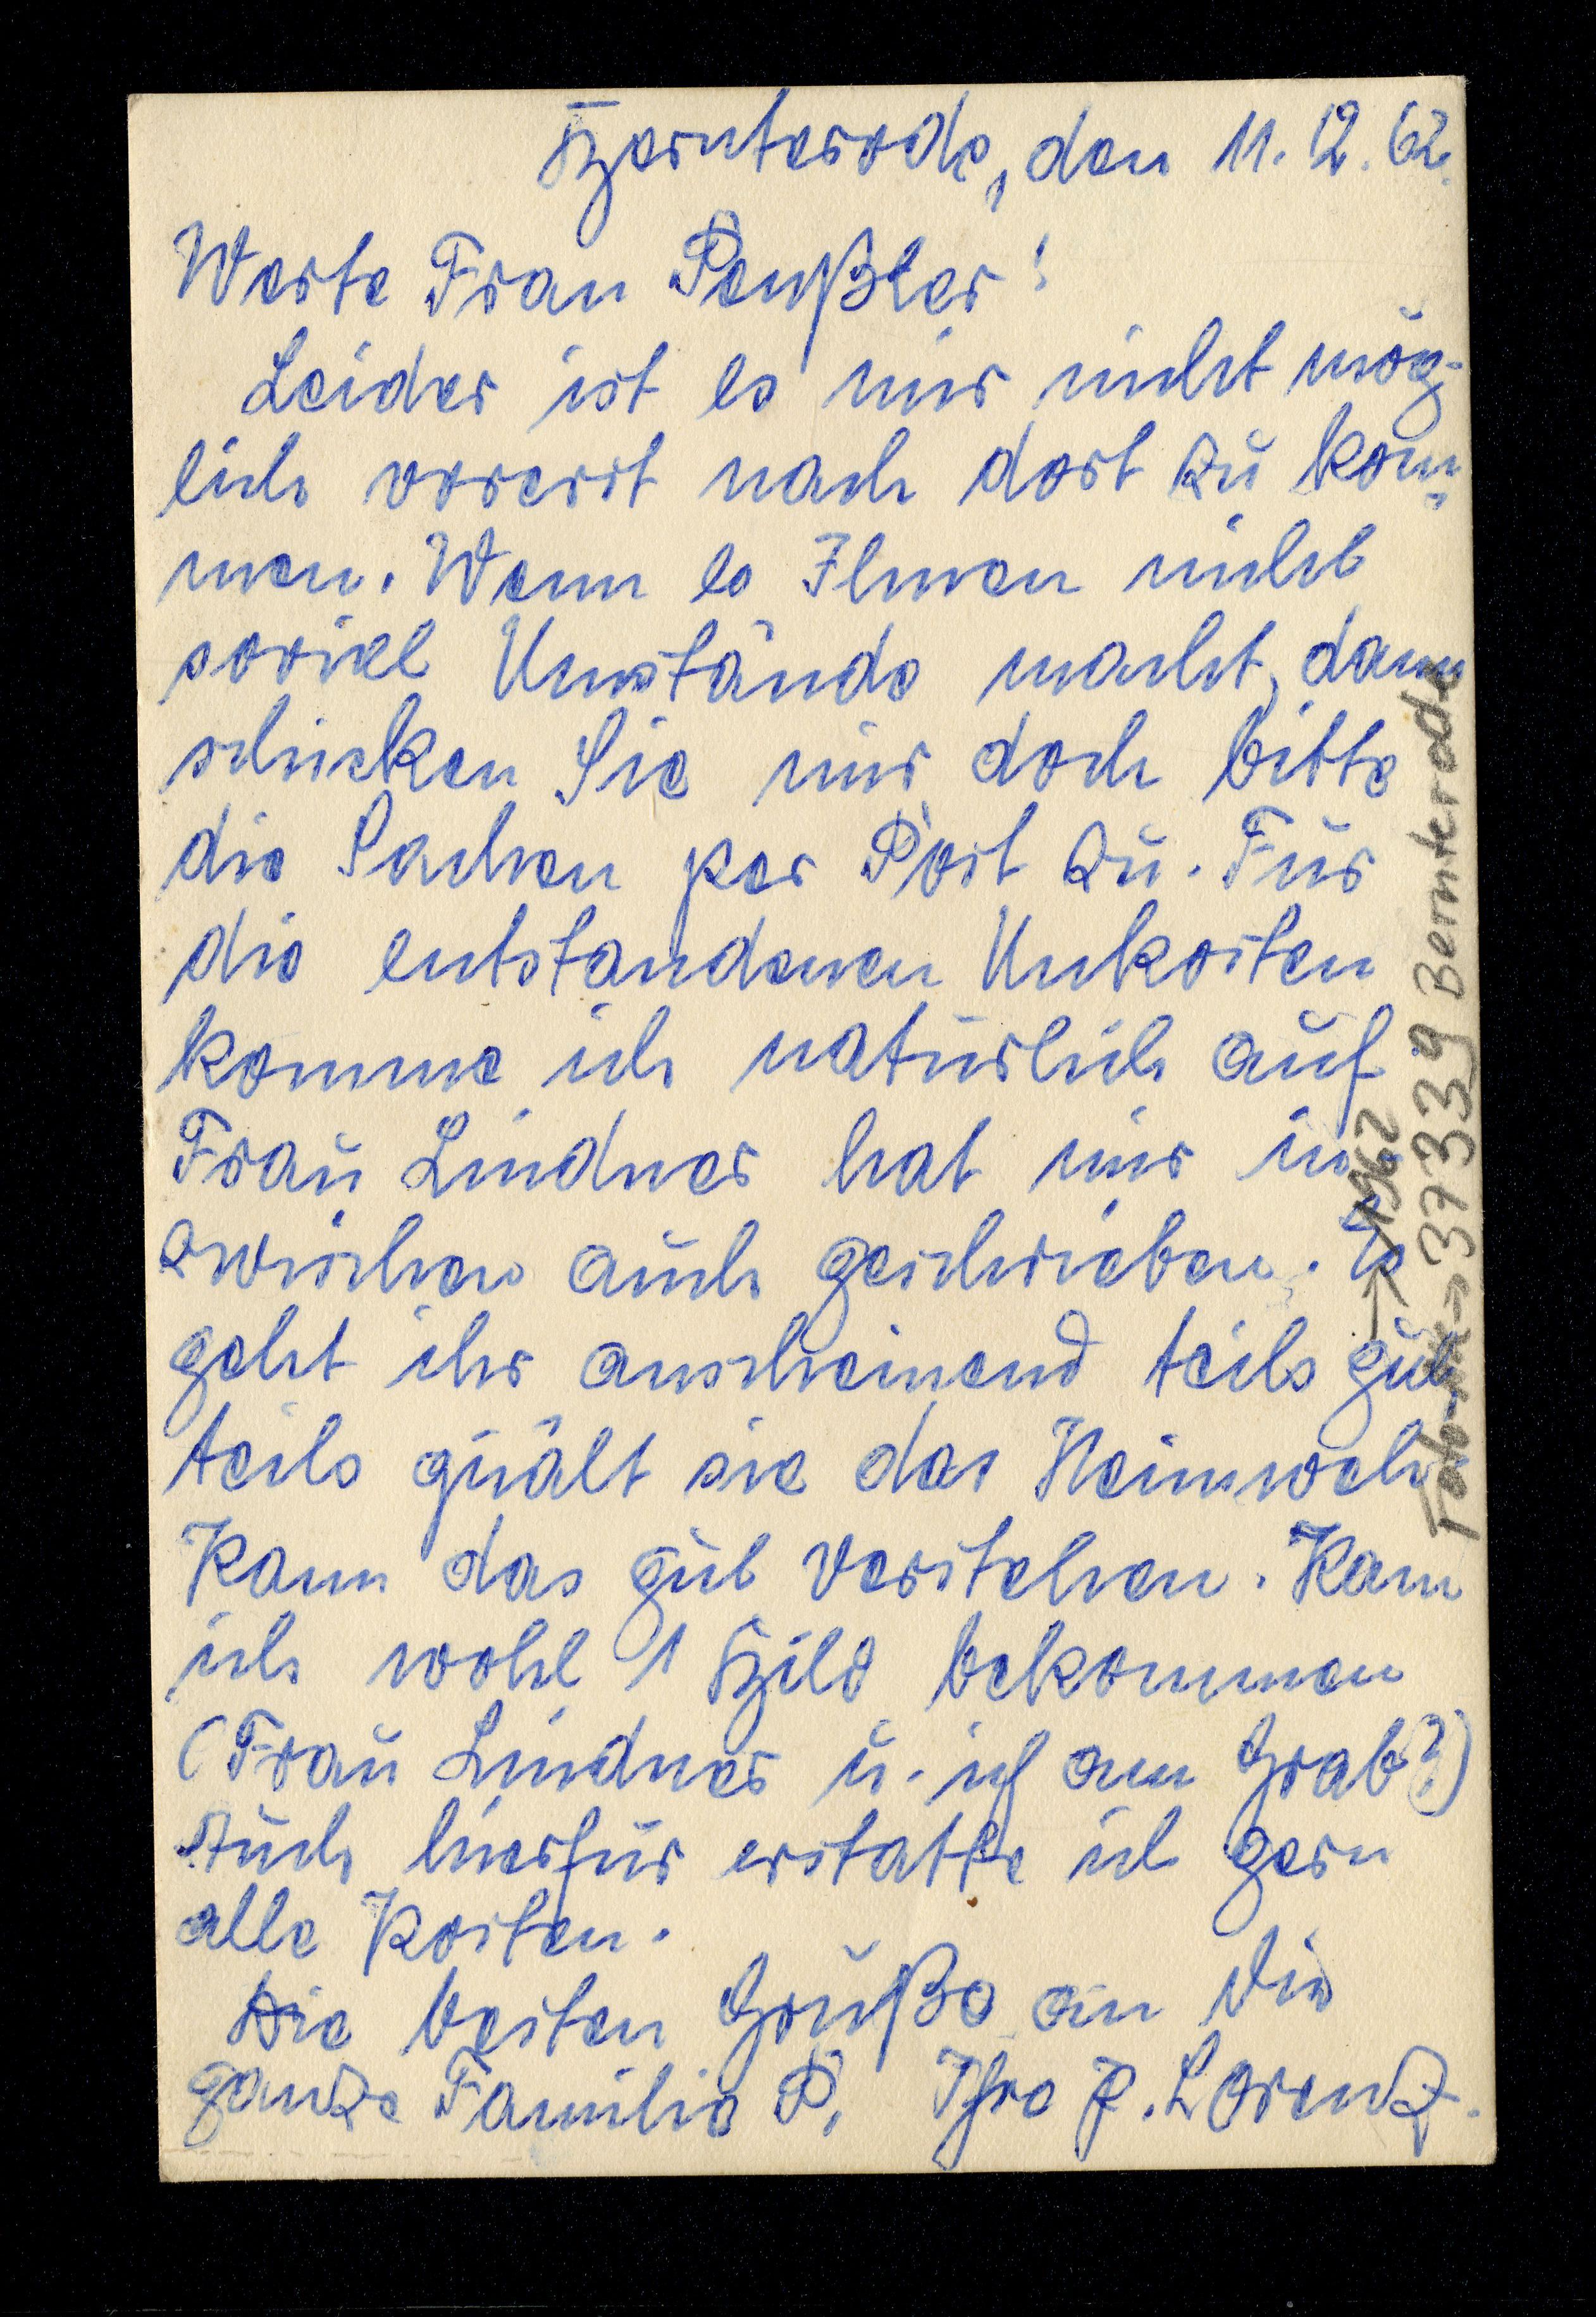 Bernterode, den 11.12.62.
Werte Frau Peußler!
Leider ist es mir nicht mög-
lich vorerst nach dort zu kom-
men. Wenn es Ihnen nicht
soviel Umstände macht, dann
schicken Sie mir doch bitte
die Sachen per Post zu. Für
die entstandenen Unkosten
komme ich natürlich auf.
Frau Lindner hat mir in
zwischen auch geschrieben. Es
geht ihr anscheinend teils gut,
teils quält sie das Heimweh.
Kann das gut verstehen. Kann
ich wohl 1 Bild bekommen
(Frau Lindner u. ich am Grab?)
Auch hierfür erstatte ich gern
alle Kosten.
Die besten Grüße an die
ganze Familie P. Ihre J. Lorenz.
1962
37339 Bernterode